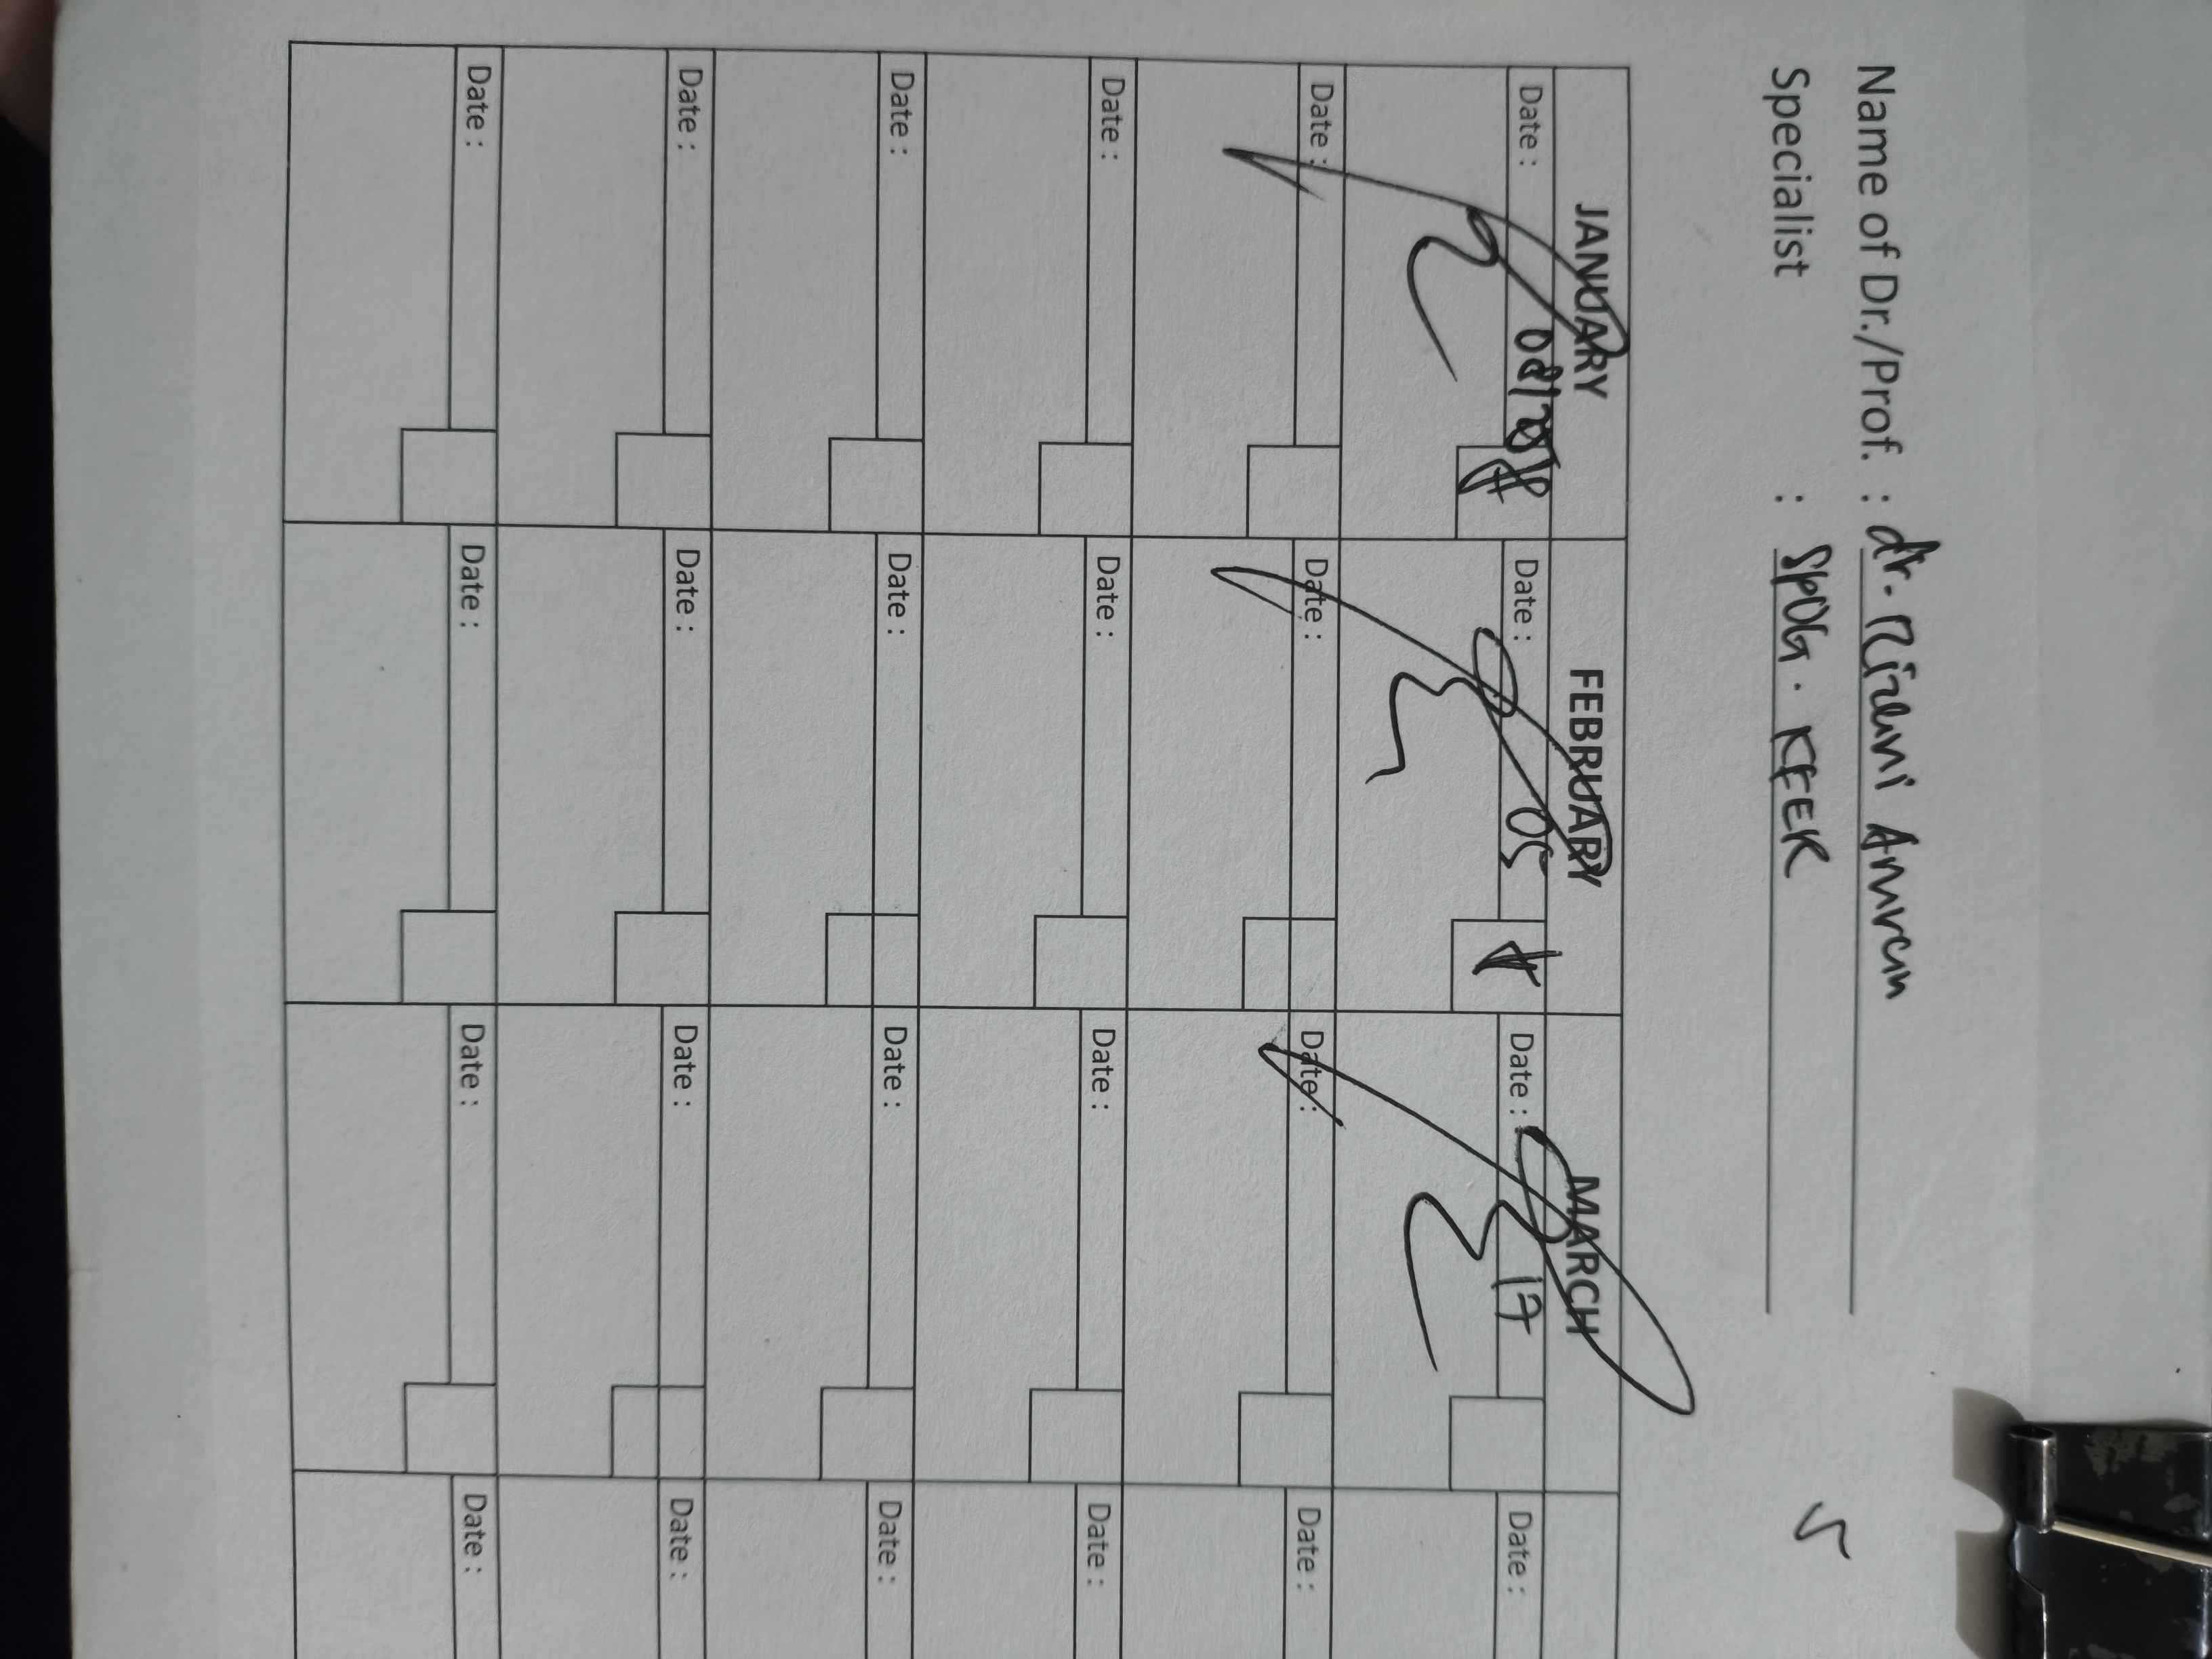 Name of Dr./Prof. : dr.
Specialist : SpOG. KFER
JANUARY FEBRUARY MARCH
Date : Date : 05 Date : 17 Date :
Date : Date : Date : Date :
Date : Date : Date : Date :
Date : Date : Date : Date :
Date : Date : Date : Date :
Date : Date : Date : Date :